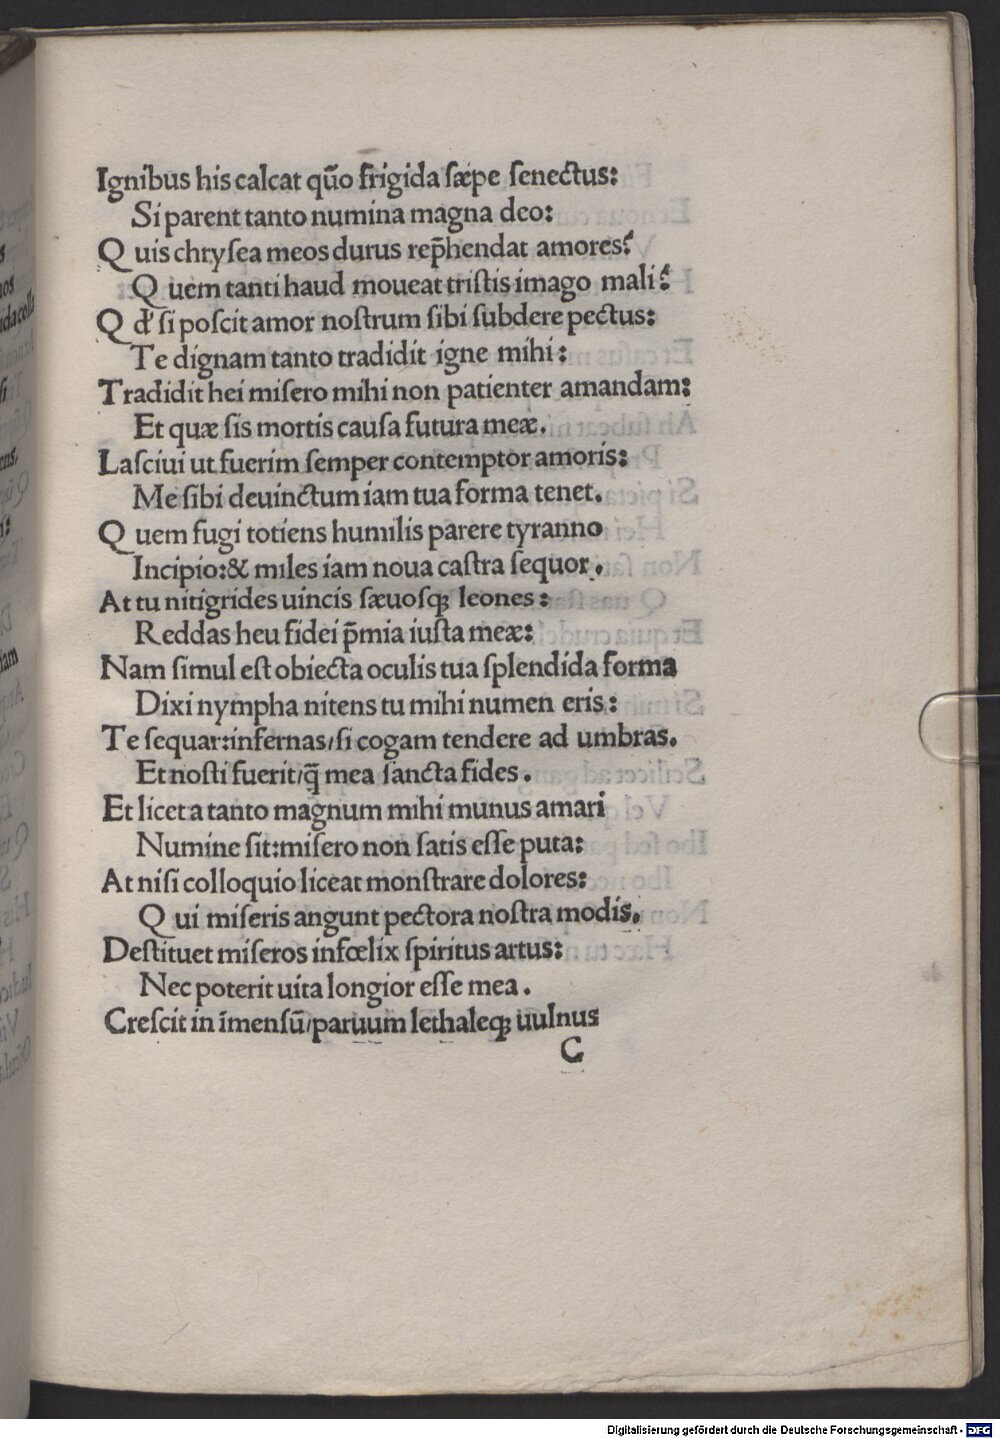 Ignibus his calcat qũo frigida sæpe senectus:
Si parent tanto numina magna deo:
Q uis chrysea meos durus rep̃hendat amores?
Q uem tanti haud moueat tristis imago mali?
Q d' si poscit amor nostrum sibi subdere pectus:
Te dignam tanto tradidit igne mihi:
Tradidit hei misero mihi non patienter amandam:
Et quæ sis mortis causa futura meæ.
Lasciui ut fuerim semper contemptor amoris:
Me sibi deuinctum iam tua forma tenet.
Q uem fugi totiens humilis parere tyranno
Incipio:& miles iam noua castra sequor.
At tu ni tigrides uincis sæuosq; leones:
Reddas heu fidei p̃mia iusta meæ:
Nam simul est obiecta oculis tua splendida forma
Dixi nympha nitens tu mihi numen eris:
Te sequar:infernas/si cogam tendere ad umbras.
Et nosti fuerit/q̃ mea sancta fides.
Et licet a tanto magnum mihi munus amari
Numine sit:misero non satis esse puta:
At nisi colloquio liceat monstrare dolores:
Q ui miseris angunt pectora nostra modis.
Destituet miseros infœlix spiritus artus:
Nec poterit uita longior esse mea.
Crescit in īmensũ/paruum lethaleq; uulnus
C
Digitalisierung gefördert durch die Deutsche Forschungsgemeinschaft - DFG